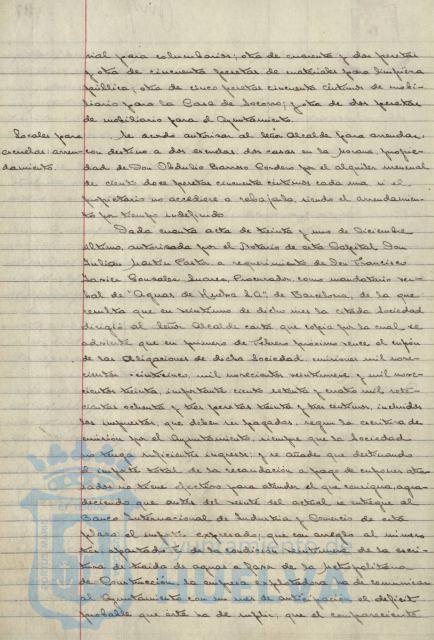 rial para columbarios; otra de cuarenta y dos pesetas
y otra de cincuenta pesetas de materiales para limpieza
pública; otra de cinco pesetas cincuenta céntimos de mobi-
liario para la Casa de Socorro; y otra de dos pesetas
de mobiliario para el Ayuntamiento.
Locales para
escuelas: arren-
damiento.
Se acordó autorizar al Señor Alcalde para arrendar,
con destino a dos escuelas dos casas en la propie-
dad de Don Obdulio Barroso Cordero por el alquiler mensual
de ciento doce pesetas cincuenta céntimos cada una si el
propietario no accediere a rebajarla, siendo el arrendamien-
to por tiempo indefinido.
Dada cuenta acta de treinta y uno de Diciembre
último, autorizada por el Notario de esta Capital, Don
Julián Pastor, a requerimiento de Don Francisco
Javier Gonzalez Suarez, Procurador, como mandatario ver-
bal de "Aguas de Huelva S.A." de Barcelona, de la que
resulta que en veintiuno de dicho mes la citada Sociedad
dirigió al Señor Alcalde carta que copia por la cual se
advierte que en primero de Febrero próximo vence el cupón
de las Obligaciones de dicha Sociedad, emisiones mil nove-
cientos veinticinco, mil novecientos veintinueve y mil nove-
cientos treinta, importante ciento setenta y cuatro mil sete-
cientas ochenta y tres pesetas treinta y tres céntimos, incluidos
los impuestos, que deben ser pagadas, según la escritura de
emisión por el Ayuntamiento, siempre que la Sociedad
no tenga suficientes ingresos; y se añade que destinando
el importe total de la recaudación a pago de cupones atra-
sados no tiene efectivo para atender el que consigna, agra-
deciendo que antes del veinte del actual se entregue al
Banco Internacional de Industria y Comercio de esta
plaza el importe expresado; que con arreglo al número
tres, apartado de la condición veintiuna de la escri-
tura de traida de aguas a favor de la Metropolitana
de Construcción, la empresa explotadora ha de comunicar
al Ayuntamiento con un mes de anticipación el déficit
probable que éste ha de suplir; que el compareciente